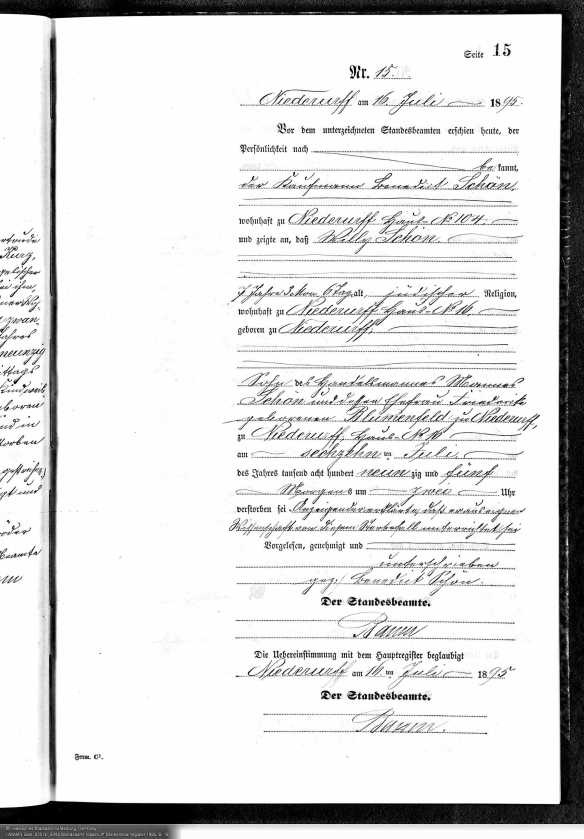 Seite 15
Nr. 15.
Niederurff am 16. Juli 1895.
Vor dem unterzeichneten Standesbeamten erschien heute, der
Persönlichkeit nach
be kannt,
der Kaufmann Benedict Schön,
wohnhaft zu Niederurff Haus-No 104.
und zeigte an, daß Willy Schön.
7 Jahre 3 Mon. 6 Tag alt, jüdischer Religion,
wohnhaft zu Niederurff Haus-No 16.
geboren zu Niederurff,
Sohn des Handelsmannes Mannes
Schön und dessen Ehefrau Friederike
geborenen Blumenfeld zu Niederurff,
zu Niederurff, Haus-No 16
am sechzehn ten Juli
des Jahres tausend acht hundert neun zig und fünf
Morgens um zwei Uhr
verstorben sei Anzeigender erklärte, daß er aus eigener
Wissenschaft von diesem Sterbefall unterrichtet sei
Vorgelesen, genehmigt und
unterschrieben
gez. Benedict Schön.
Der Standesbeamte.
Die Uebereinstimmung mit dem Hauptregister beglaubigt
Niederurff am 16. ten Juli 1895
Der Standesbeamte.
Form. C¹.